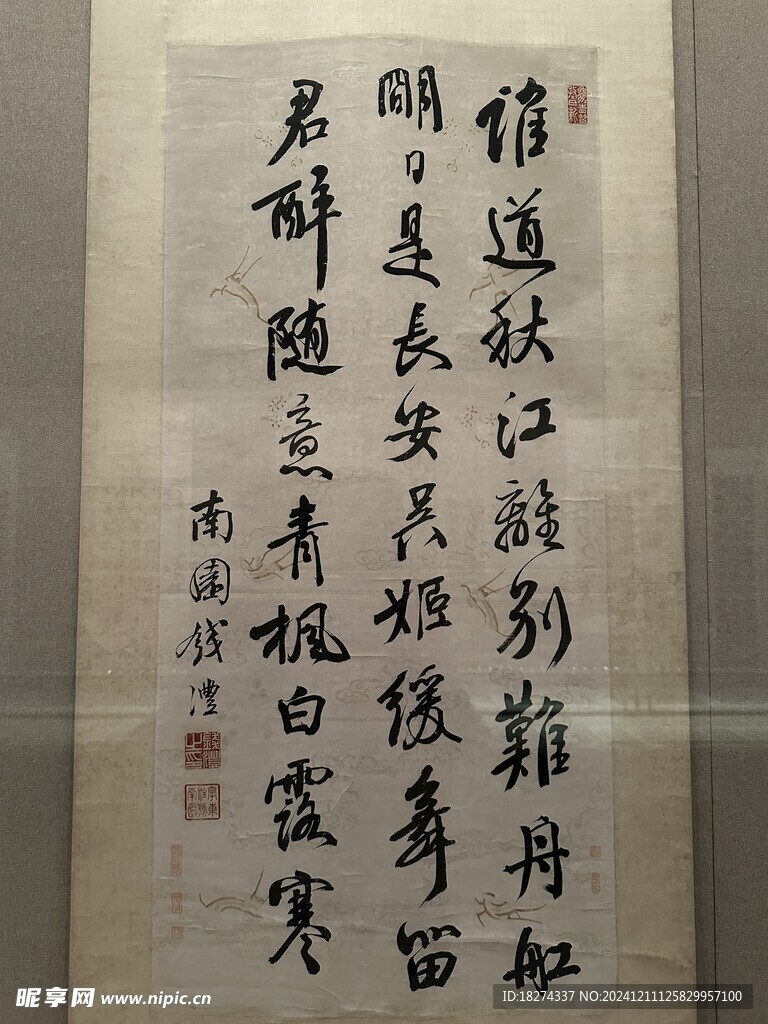 誰道秋江離別難舟船
朙日是長安吳姬緩舞留
君醉随意青楓白露寒
南園錢灃
昵享网 www.nipic.cn
ID:18274337 NO:20241211125829957100